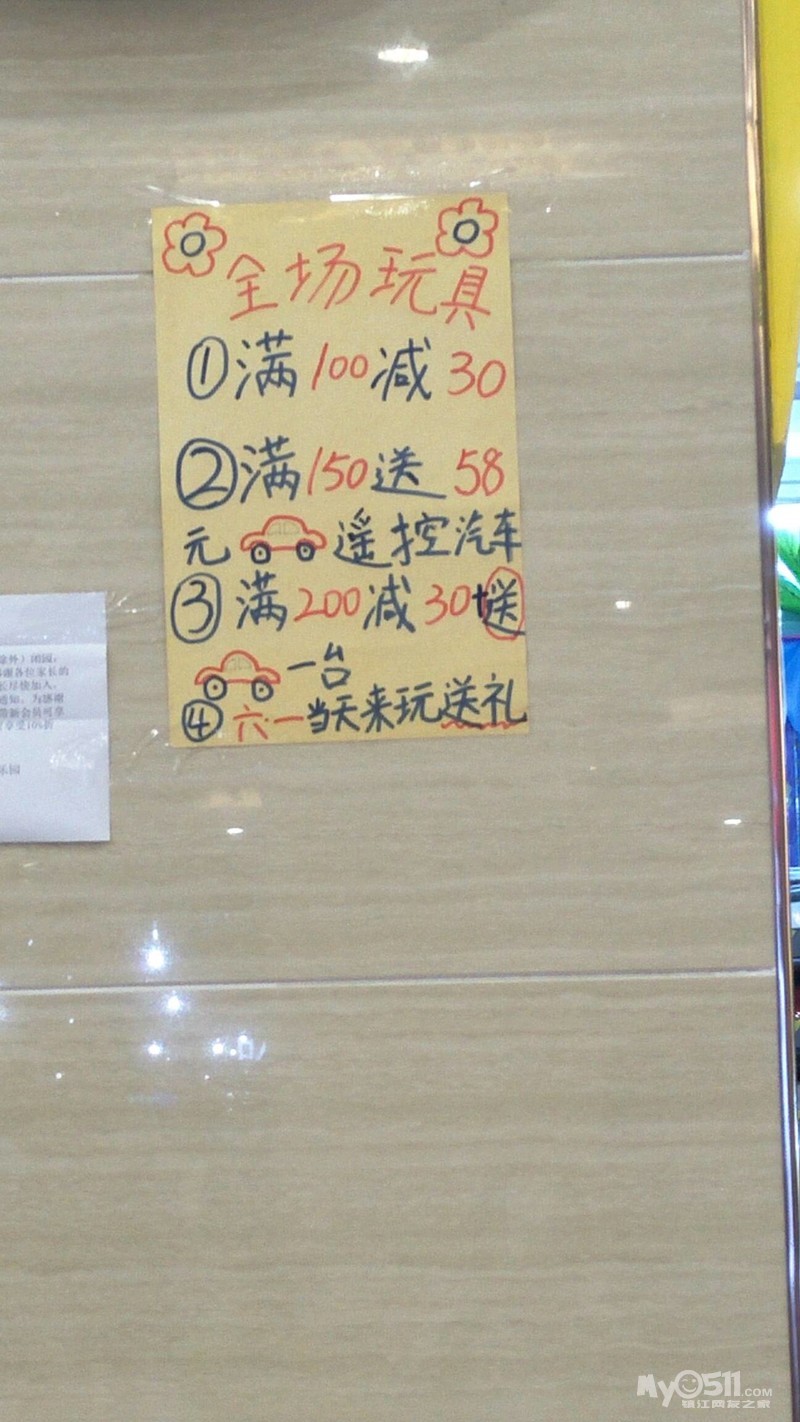 全场玩具
①满100减30
②满150送58
元遥控汽车
③满200减30+送
一台
④六一当天来玩送礼
除外）闭园，
谢各位家长的
长尽快加入。
通知。为感谢
带新会员可享
可享受10%折
乐园
My0511.COM
镇江网友之家